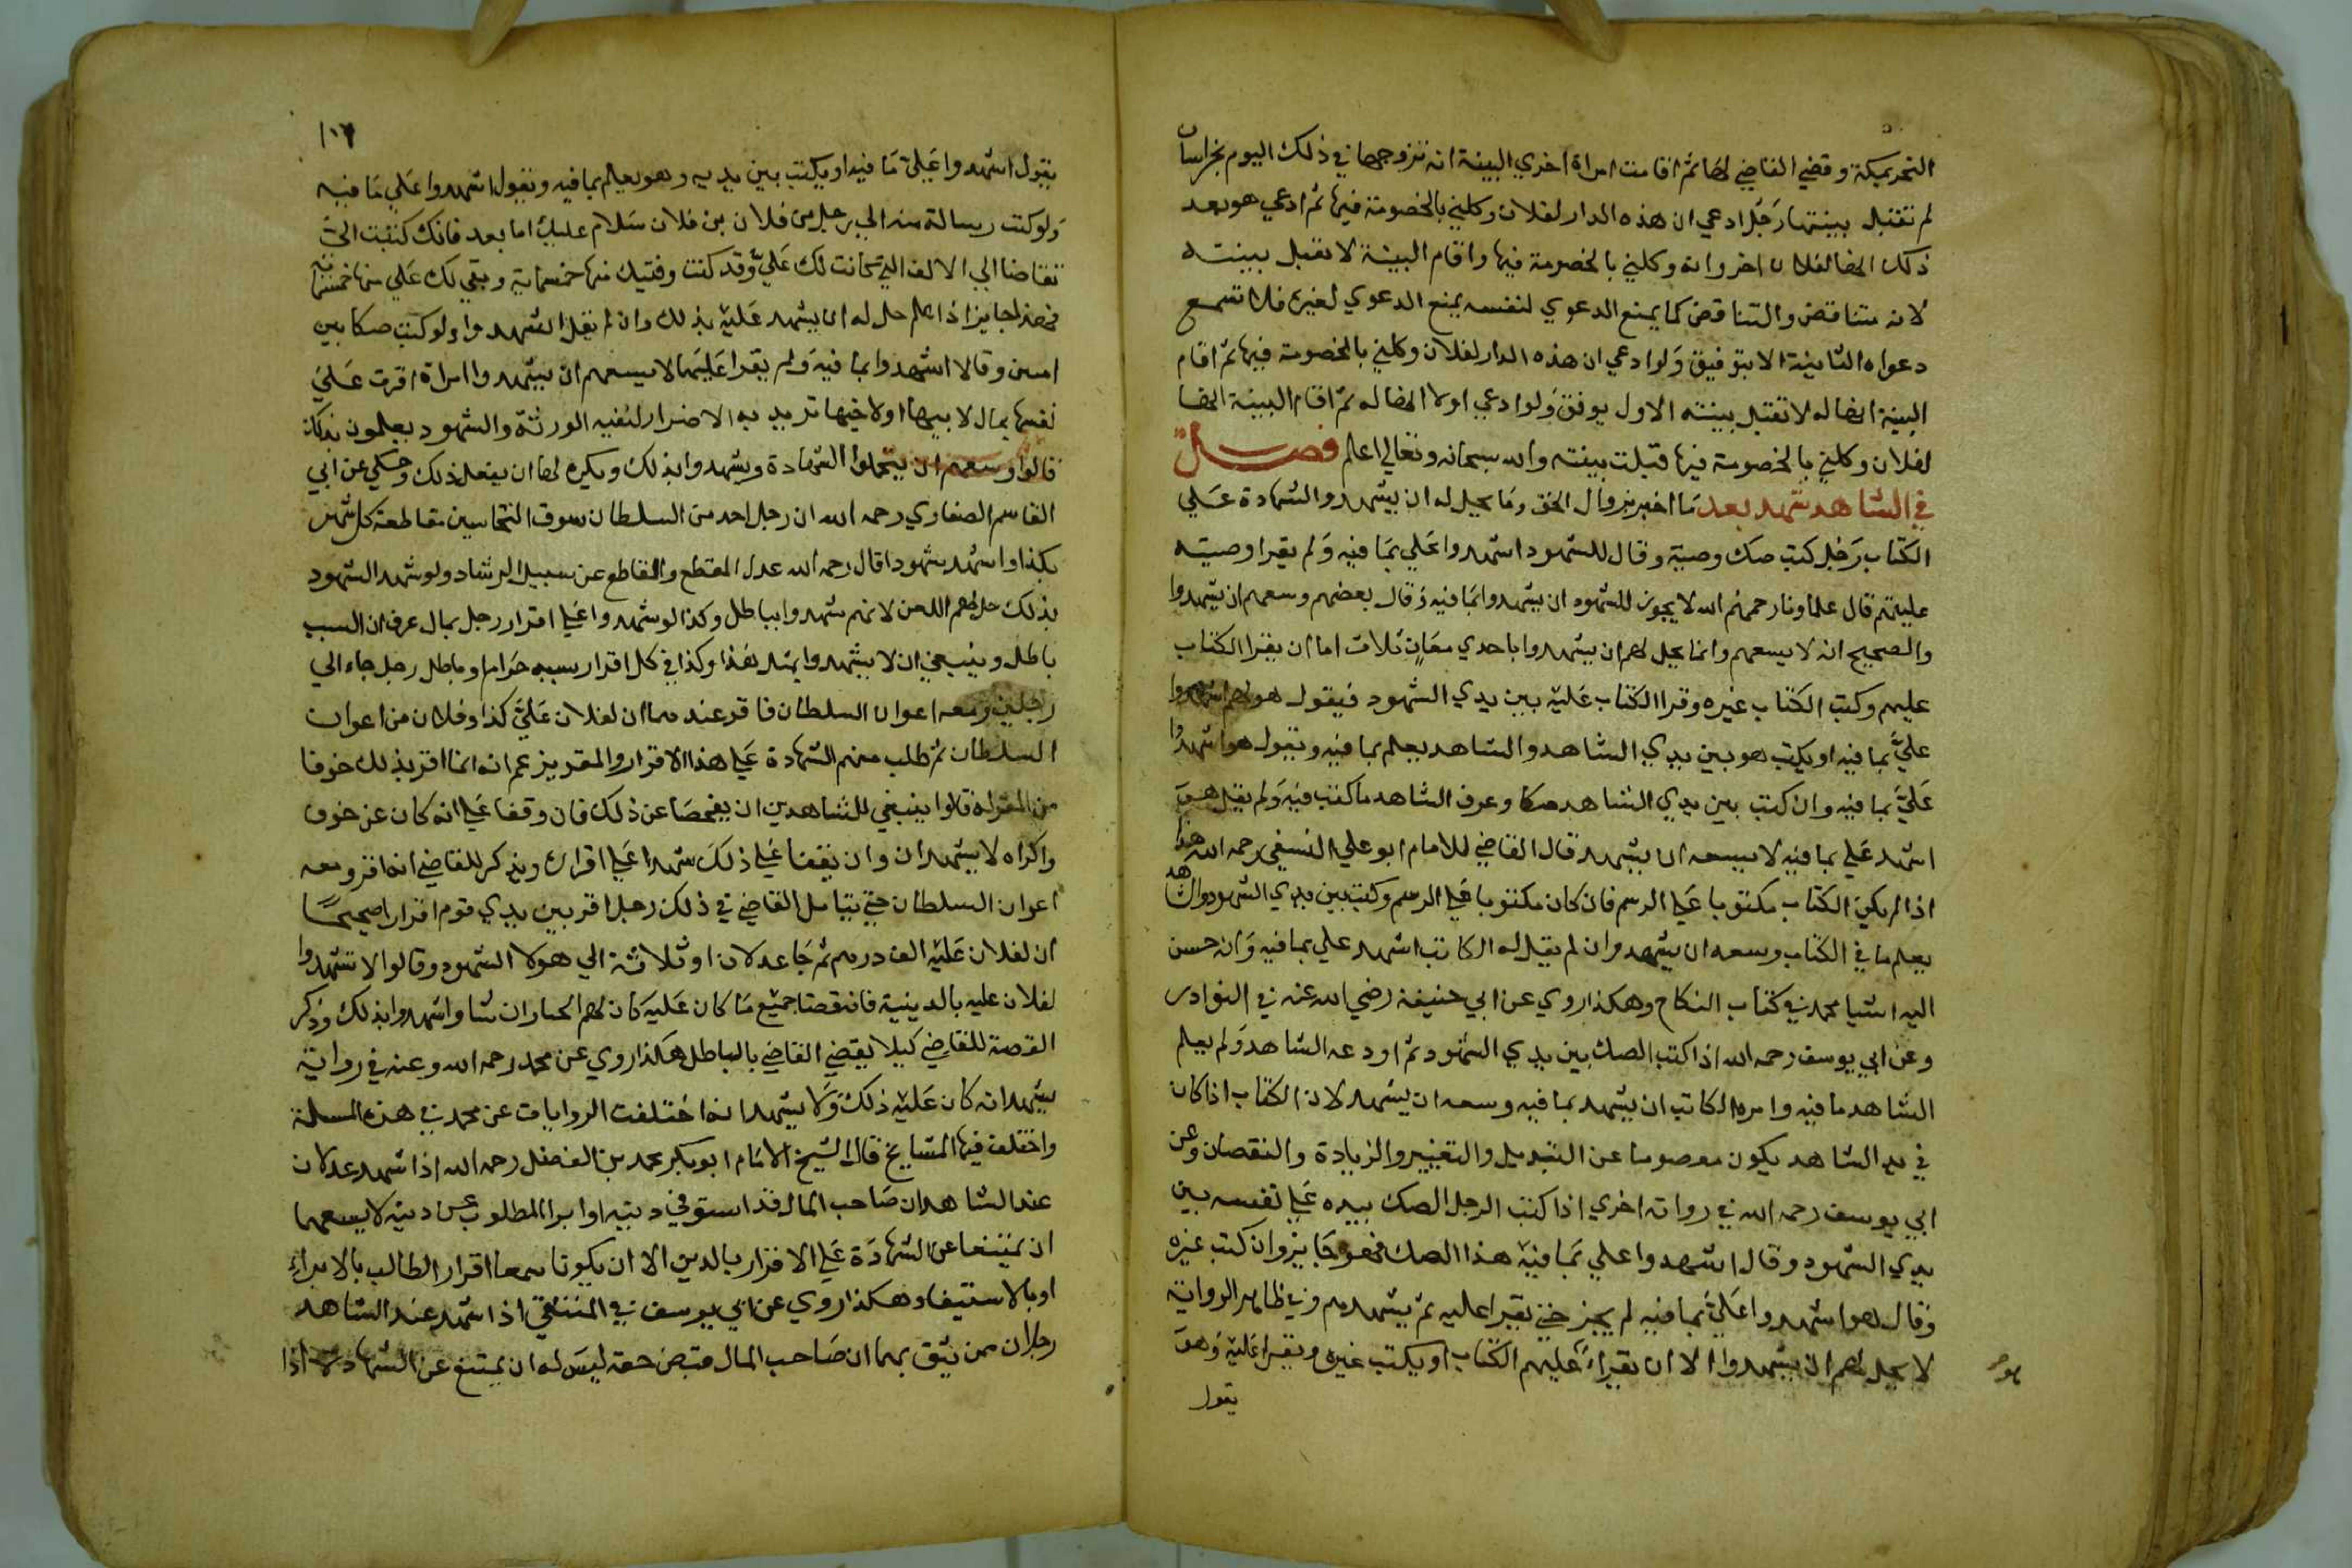 النحر بمكة وقضي القاضي لها ثم اقامت امراة اخري البينة انه تزوجها في ذلك اليوم بخراسان
لم تقبل بينتها رَجُل ادعي ان هذه الدار لفلان وكلني بالخصومة فيها ثم ادعي هو بعد
ذلك انها لفلان اخر وانه وكلني بالخصومة فيها واقام البينة لا تقبل بينته
لانه متناقض والتناقض كما يمنع الدعوي لنفسه يمنع الدعوي لغيره فلا تسمع
دعواه الثانية الا بتوفيق وَلو ادعي ان هذه الدار لفلان وكلني بالخصومة فيها ثم اقام
البينة انها له لا تقبل بينته الاول يوفق وَلو ادعي اولا انها له ثم اقام البينة انها
لفلان وكلني بالخصومة فيها قبلت بينته والله سبحانه وتعالي اعلم فصل
في الشاهد شهد بعد مَا اخبر بزوال الحق وَما يحل له ان يشهد والشهادة عَلي
الكتاب رَجُل كتب صك وصية وقال للشهود اشهدوا عَلي بمَا فيه وَلم يقرا وصيته
عليهم قال علماونا رحمهم الله لا يجوز للشهود ان يشهدوا بمَا فيه وَقال بعضهم وسعهم ان يشهدوا
والصحيح انه لا يسعهم وانما يحل لهم ان يشهدوا باحدي معَانٍ ثلاث اما ان يقرا الكتاب
عليهم وكتب الكتاب غيره وقرا الكتاب عَليه بين يدي الشهود فيقول هو لهم اشهدوا
عليَّ بما فيه او يكتب هو بين يدي الشاهد والشاهد يعلم بما فيه ويقول هو اشهدوا
عَليَّ بما فيه وان كتب بين يدي الشاهد صكا وعرف الشاهد ما كتب فيه وَلم يقل هوَ
اشهد عَلي بما فيه لا يسعه ان يشهد قال القاضي للامام ابو علي النسفي رحمه الله هذا
اذا لم يكن الكتاب مكتوبا عَلي الرسم فان كان مكتوبا عَلي الرسم وكتب بين يدي الشهود والشاهد
يعلم ما في الكتاب وسعه ان يشهد وان لم يقل له الكاتب اشهد علي بما فيه وَانه حسن
اليه اشيا محمد في كتاب النكاح وهكذا روي عن ابي حنيفة رضي الله عنه في النوادر
وعن ابي يوسف رحمه الله اذا كتب الصك بين يدي الشهود ثم اودعه الشاهد وَلم يعلم
الشاهد ما فيه وامره الكاتب ان يشهد بما فيه وسعه ان يشهد لان الكتاب اذا كان
في يد الشاهد يكون معصوما عن التبديل والتغيير والزيادة والنقصان وعن
ابي يوسف رحمه الله في رواية اخري اذا كتب الرجل الصك بيده عَلي نفسه بين
يدي الشهود وقال اشهدوا علي بمَا فيه هذا الصك فهو جَايز وان كتب غيره
وَقال هو اشهدوا عَليَّ بما فيه لم يجز حتي يقرا عليه ثم يشهدهم وفي ظاهر الرواية
لا يحل لهم ان يشهدوا الا ان يقراء عليهم الكتاب او يكتب غيره ويقرا عَليه وَهوَ
يقول
١٠٦
يقول اشهدوا عَليَّ مَا فيه او يكتب بين يديه وهو يعلم بما فيه ويقول اشهدوا عَلي مَا فيه
وَلو كتب رسالة منه الي رجل من فلان بن فلان سَلام عليك اما بعد فانك كتبت اليَّ
تتقاضا الي الالف التي كانت لك عَليَّ وقد كنت وفيتك منها خمسماية وبقي لك عَلي منها خمسماية
فهذا جايز اذا علم حل له ان يشهد عَليه بذلك وان لم يقل اشهدوا ولو كتب صكا بين
امين وقالا اشهدوا بما فيه وَلم يقرا عَليهَما لا يسعهم ان يشهدوا امراة اقرت عَلي
نفسها بمال لابيها او لاخيها تريد به الاضرار لبقيه الورثة والشهود يعلمون بذلك
قالوا وسعهم ان يتحملوا الشهادة ويشهدوا بذلك ويكره لها ان يفعل ذلك وحكي عن ابي
القاسم الصفاري رحمه الله ان رجل احد من السلطان سوف النخاسين مقاطعة كل شهر
بكذا واشهد شهودا قال رحمه الله عدل المقطع والمقاطع عن سبيل الرشاد ولو شهد الشهود
بذلك حل لهم اللعن لانهم شهدوا بباطل وكذا لو شهدوا عَلي اقرار رجل بمال عرف ان السبب
باطل وينبغي ان لا يشهدوا بمثل هَذا وكذا في كل اقرار سببه حَرام وباطل رجل جاء الي
رجلين ومعه اعوان السلطان فاقر عندهما ان لفلان عَليَّ كذا وفلان من اعوان
السلطان ثم طلب منهم الشهادة عَلي هذا الاقرار والمقر يزعم انه انما اقر بذلك خوفا
من المقر له قالوا ينبغي للشاهدين ان يفحصَا عن ذلك فان وقفا عَلي انه كان عن خوف
واكراه لا يشهدان وان يقفا عَلي ذلكَ شهدا عَلي اقراره ويذكر للقاضي انه اقر ومعه
اعوان السلطان حتي يتامل القاضي في ذلك رجل اقر بين يدي قوم اقرارا صحيحًا
ان لفلان عَليه الف درهم ثم جَا عدلان او ثلاثة الي هولا الشهود وقالوا لا تشهدوا
لفلان عليه بالدين فانه قضا جميع مَا كان عَليه كان لهم الخيار ان شاوا شهدوا بذلك وذكر
القصة للقاضي كيلا يقضي القاضي بالباطل هكذا روي عن محمد رحمه الله وعنه في رواية
يشهد انه كان عَليه ذلكَ وَلا يشهد انه اختلفت الروايات عن محمد في هذه المسلة
واختلف فيها المشايخ قال الشيخ الامَام ابو بكر محمد بن الفضل رحمه الله اذا شهد عدلان
عند الشاهد ان صَاحب المال قد استوفي دينه او ابرا المطلوب عن دينه لا يسعهما
ان يمتنعا عن الشهادَة عَلي الاقرار بالدين الا ان يكونا سمعا اقرار الطالب بالابراءِ
او بالاستيفاء وهكذا روي عن ابي يوسف في المنتقي اذا شهد عند الشاهد
رجلان ممن يثق بهما ان صَاحب المال قبض حقه ليسَ له ان يمتنع عن الشهادة اذا